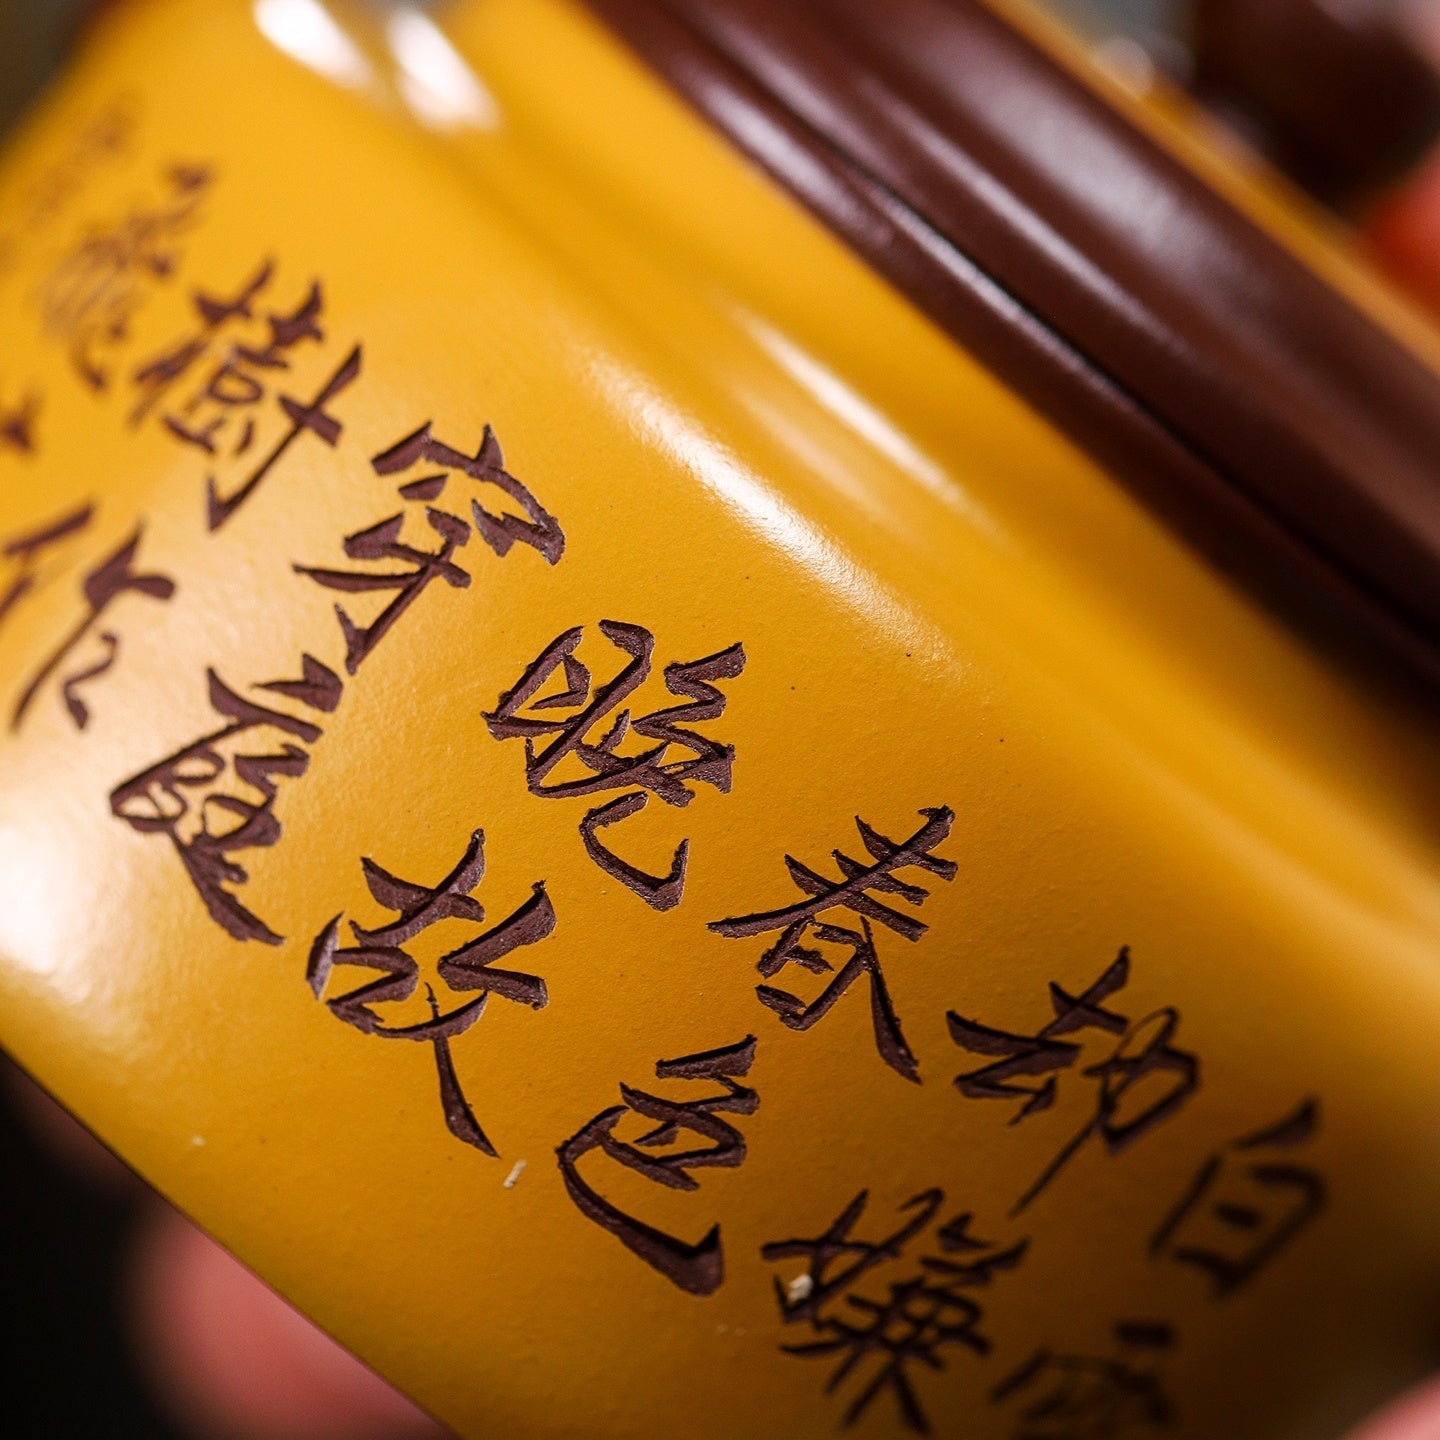 白雪
却嫌
春色
晚故
穿庭
樹作
飛